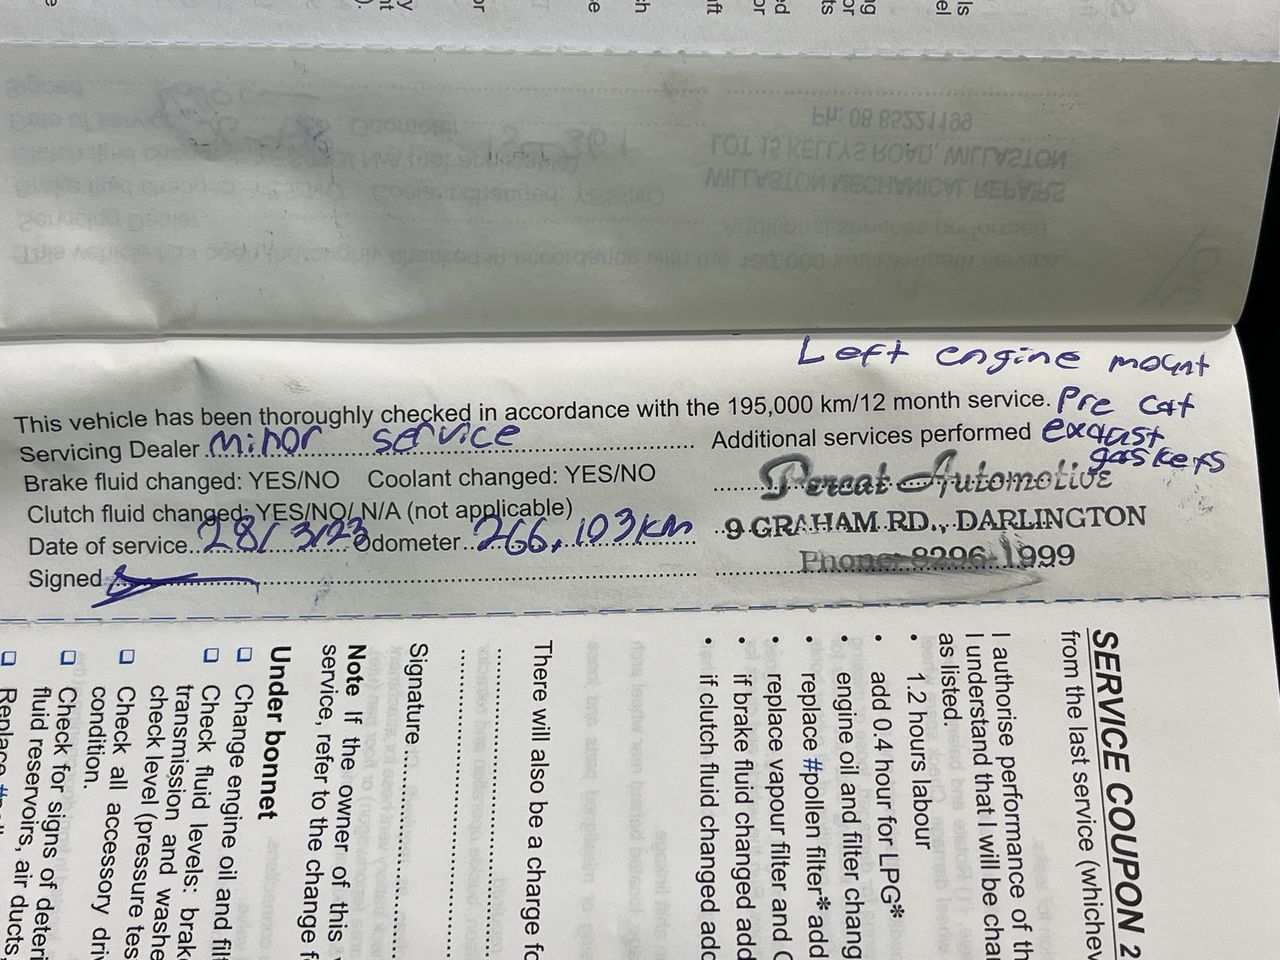 Left engine mount
This vehicle has been thoroughly checked in accordance with the 195,000 km/12 month service. Pre cat
Servicing Dealer minor service Additional services performed exaust
gaskets
Brake fluid changed: YES/NO Coolant changed: YES/NO Percat Automotive
Clutch fluid changed: YES/NO/ N/A (not applicable)
9 GRAHAM RD., DARLINGTON
Date of service 28/3/23 Odometer 266,103km
Phone: 8296-1999
Signed
SERVICE COUPON 2
from the last service (whichev
I authorise performance of th
I understand that I will be char
as listed.
• 1.2 hours labour
• add 0.4 hour for LPG*
• engine oil and filter chang
• replace #pollen filter* add
• replace vapour filter and
• if brake fluid changed add
• if clutch fluid changed add
There will also be a charge fo
Signature
Note If the owner of this
service, refer to the change
Under bonnet
Change engine oil and filt
Check fluid levels: brake
transmission and washe
check level (pressure tes
Check all accessory driv
condition.
Check for signs of deteri
fluid reservoirs, air ducts,
Replace
This vehicle has been thoroughly checked in accordance with the 180,000 service.
Servicing Dealer Additional services performed
Brake fluid changed: YES/NO Coolant changed: YES/NO
WILLASTON MECHANICAL REPAIRS
LOT 15 KELLYS ROAD, WILLASTON
Ph: 08 85221199
Date of service Odometer
Signed